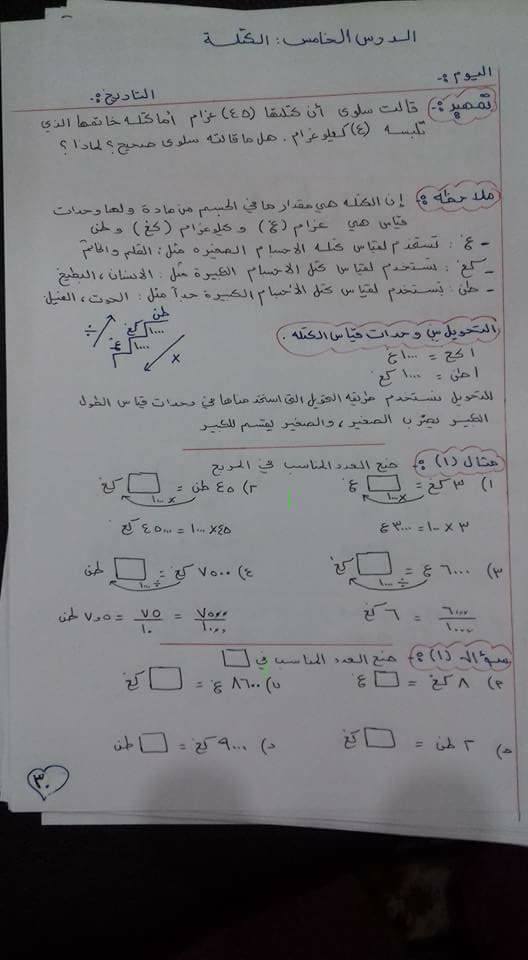 الدرس الخامس: الكتلة
اليوم:-
التاريخ:-
تمهيد:- قالت سلوى أن كتلتها (٤٥) غرام أما كتلة خاتمها الذي
تلبسه (٤) كيلو غرام. هل ما قالته سلوى صحيح؟ لماذا؟
ملاحظة:- إن الكتلة هي مقدار ما في الجسم من مادة ولها وحدات
قياس هي غرام (غ) و كيلوغرام (كغ) و طن
- غ: تستخدم لقياس كتلة الأجسام الصغيرة مثل: القلم والخاتم
- كغ: تستخدم لقياس كتل الأجسام الكبيرة مثل: الانسان، البطيخ
- طن: تستخدم لقياس كتل الأجسام الكبيرة جداً مثل: الحوت، الفيل
طن
كغ ١٠٠٠
غ ١٠٠٠
÷ ×
التحويل بين وحدات قياس الكتلة.
١ كغ = ١٠٠٠ غ
١ طن = ١٠٠٠ كغ
للتحويل نستخدم طريقة التحويل التي استخدمناها في وحدات قياس الطول
الكبير يضرب الصغير، والصغير يقسم للكبير
مثال (١):- ضع العدد المناسب في المربع
١) ٣ كغ = □ غ ٢) ٤٥ طن = □ كغ
×١٠٠٠ ×١٠٠٠
٣ × ١٠٠٠ = ٣٠٠٠ غ ٤٥ × ١٠٠٠ = ٤٥٠٠٠ كغ
٣) ٦٠٠٠ غ = □ كغ ٤) ٧٥٠٠ كغ = □ طن
÷١٠٠٠ ÷١٠٠٠
٦٠٠٠/١٠٠٠ = ٦ كغ ٧٥٠٠/١٠٠٠ = ٧٥/١٠ = ٧,٥ طن
سؤال (١):- ضع العدد المناسب في □
٨ كغ = □ غ ب) ٨٦٠٠ غ = □ كغ
٢ طن = □ كغ د) ٩٠٠٠ كغ = □ طن
٣٠